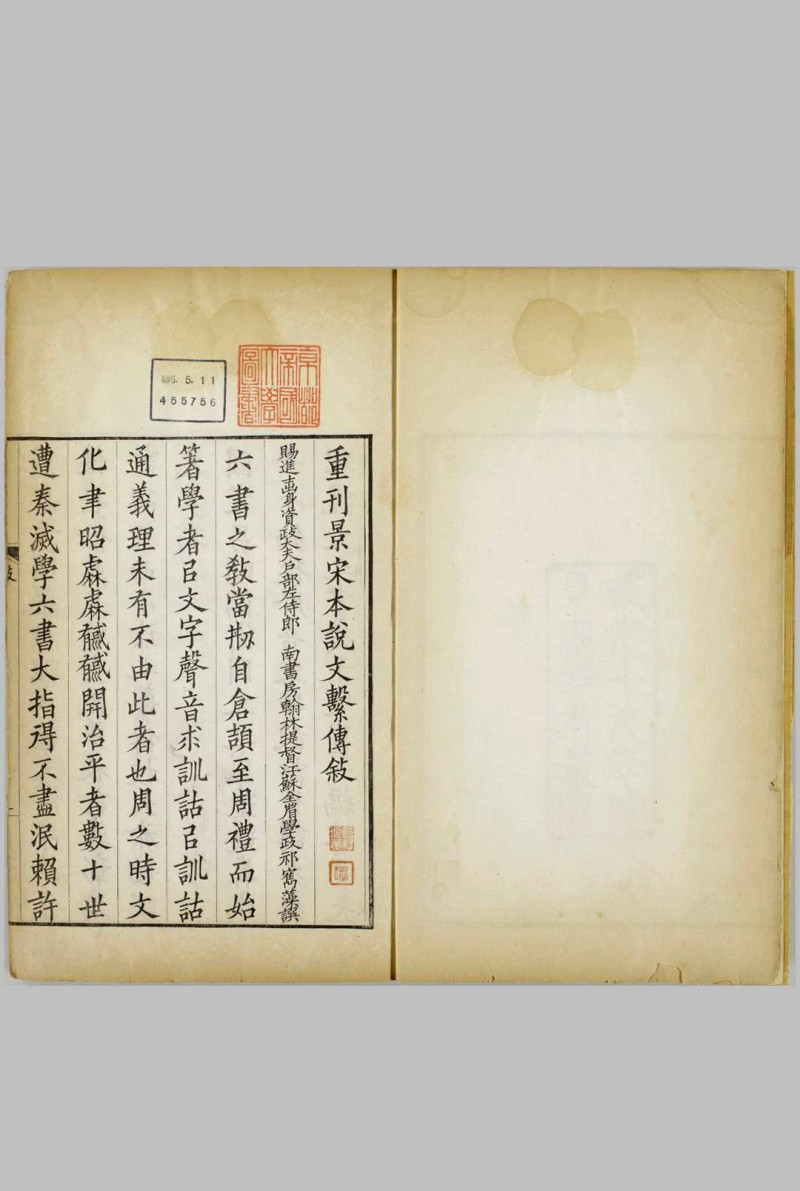 重刊景宋本說文繫傳敍
賜進士出身資政大夫戶部左侍郎 南書房翰林提督江蘇全省學政祁寯藻譔
六書之敎當㓝自倉頡至周禮而始
箸學者㠯文字聲音求訓詁㠯訓詁
通義理未有不由此者也周之時文
化聿昭彪彪彧彧開治平者數十世
遭秦滅學六書大指得不盡泯賴許
京都帝國大學圖書
5.11
455756